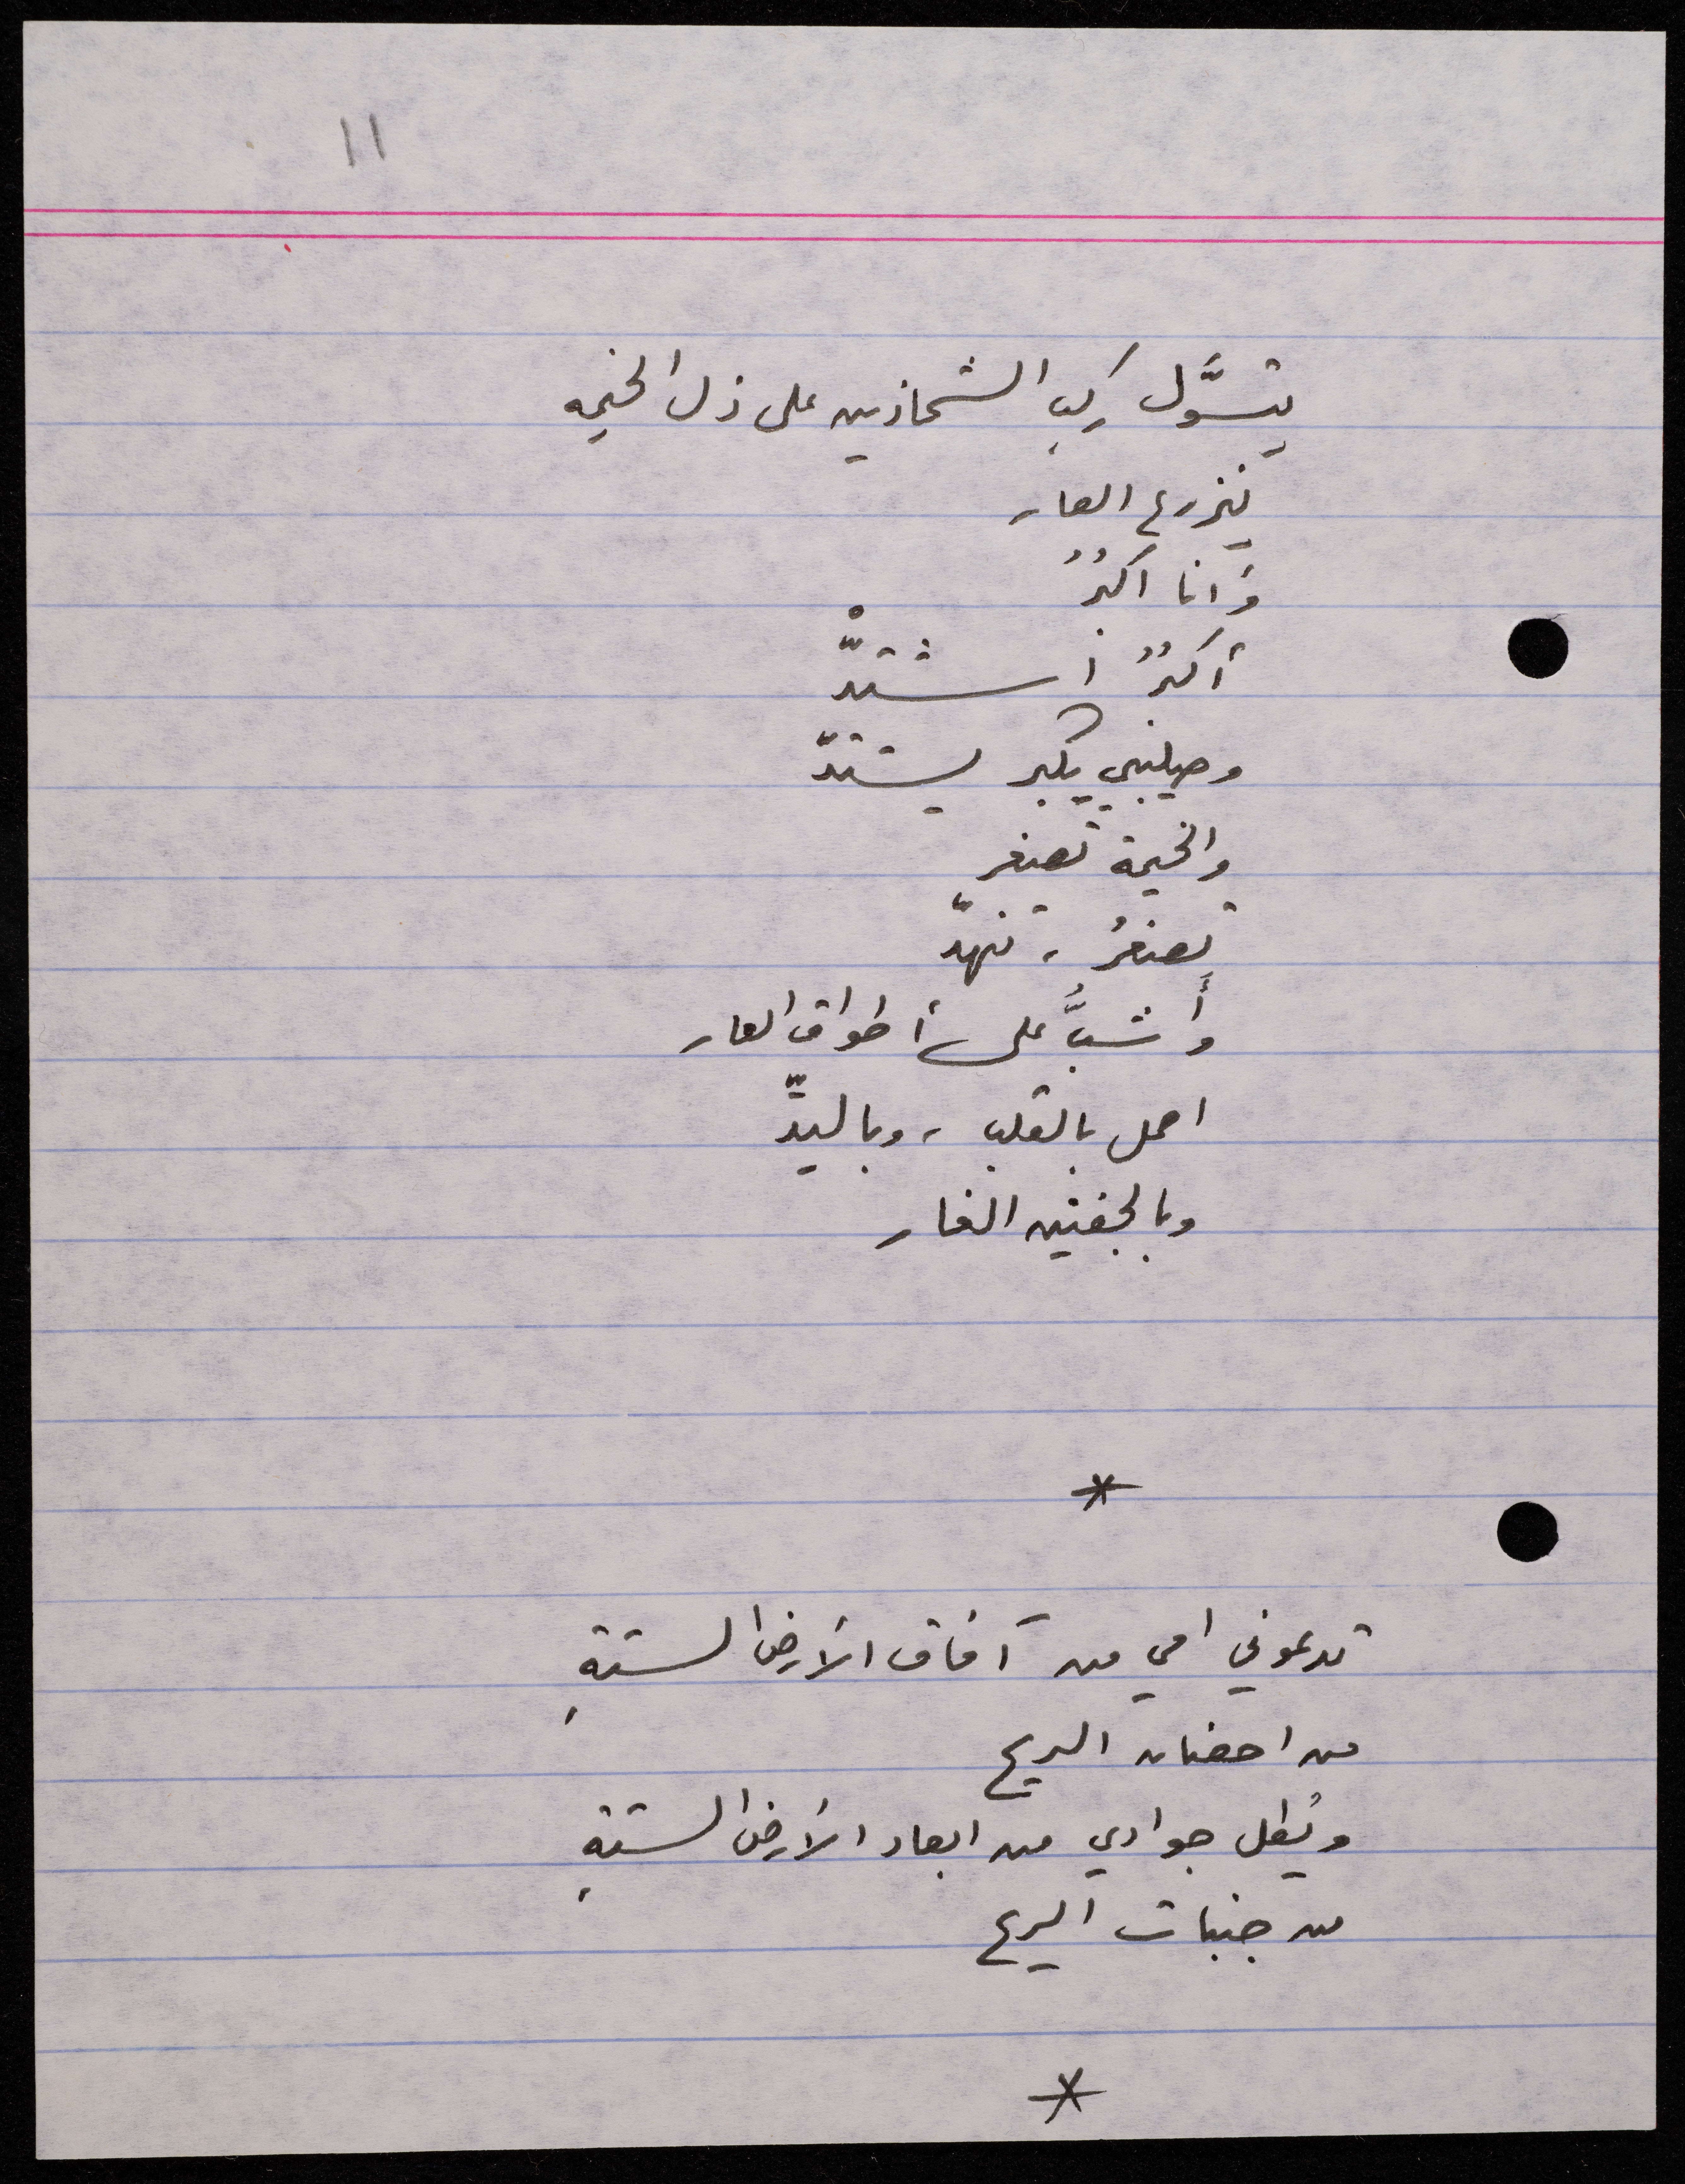 11
يتسوَّل ركب الشحاذين على ذل الخيمه
يزرع العار
وَانا اكبُرُ
أكبُرُ أشتدّْ
وصليبي يكبر يشتدّ
والخيمة تصغر
تصغرُ ، تنهدّ
وأَشبُّ على أطواق العار
احمل بالقلب ، وباليدّ
وبالجفنين الغار
*
تدعوني امي من آفاق الأرض الستةِ
من احضان الريح
ويُطل جوادي من ابعاد الأرض الستةِ
من جنبات الريح
*